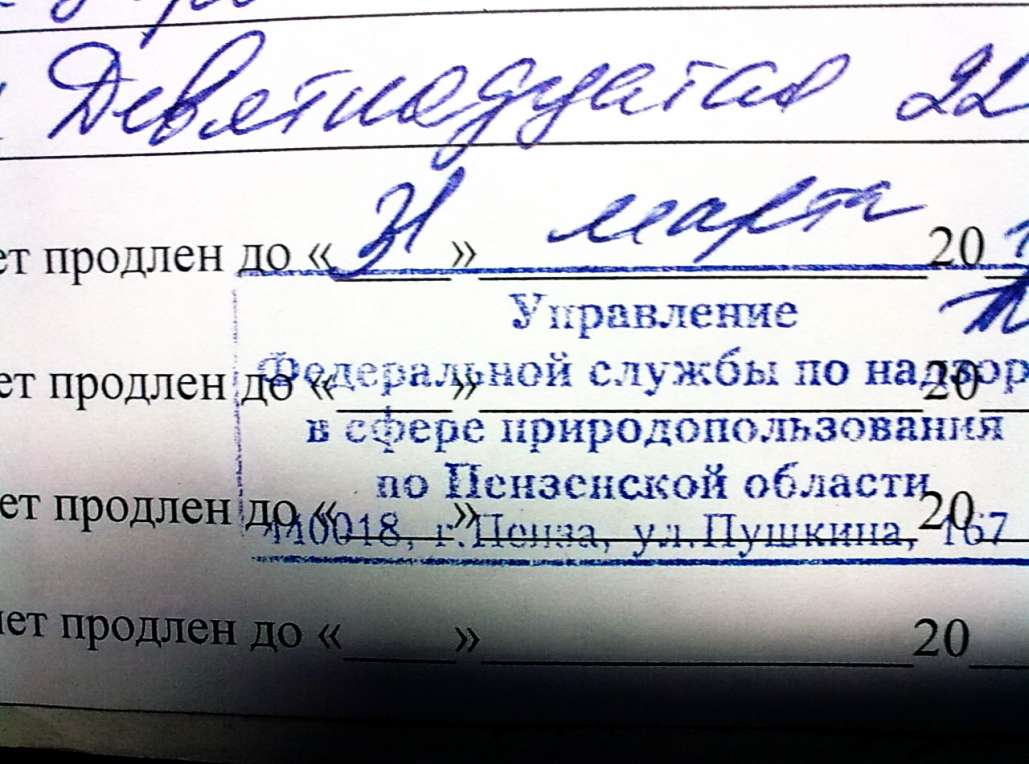 Девятнадцатая 22
ет продлен до «31» марта 20
Управление
Федеральной службы по надзор
ет продлен до «____»____ 20
в сфере природопользования
по Пензенской области
ет продлен до «____»____ 20
440018, г.Пенза, ул.Пушкина, 167
ет продлен до «____»____ 20